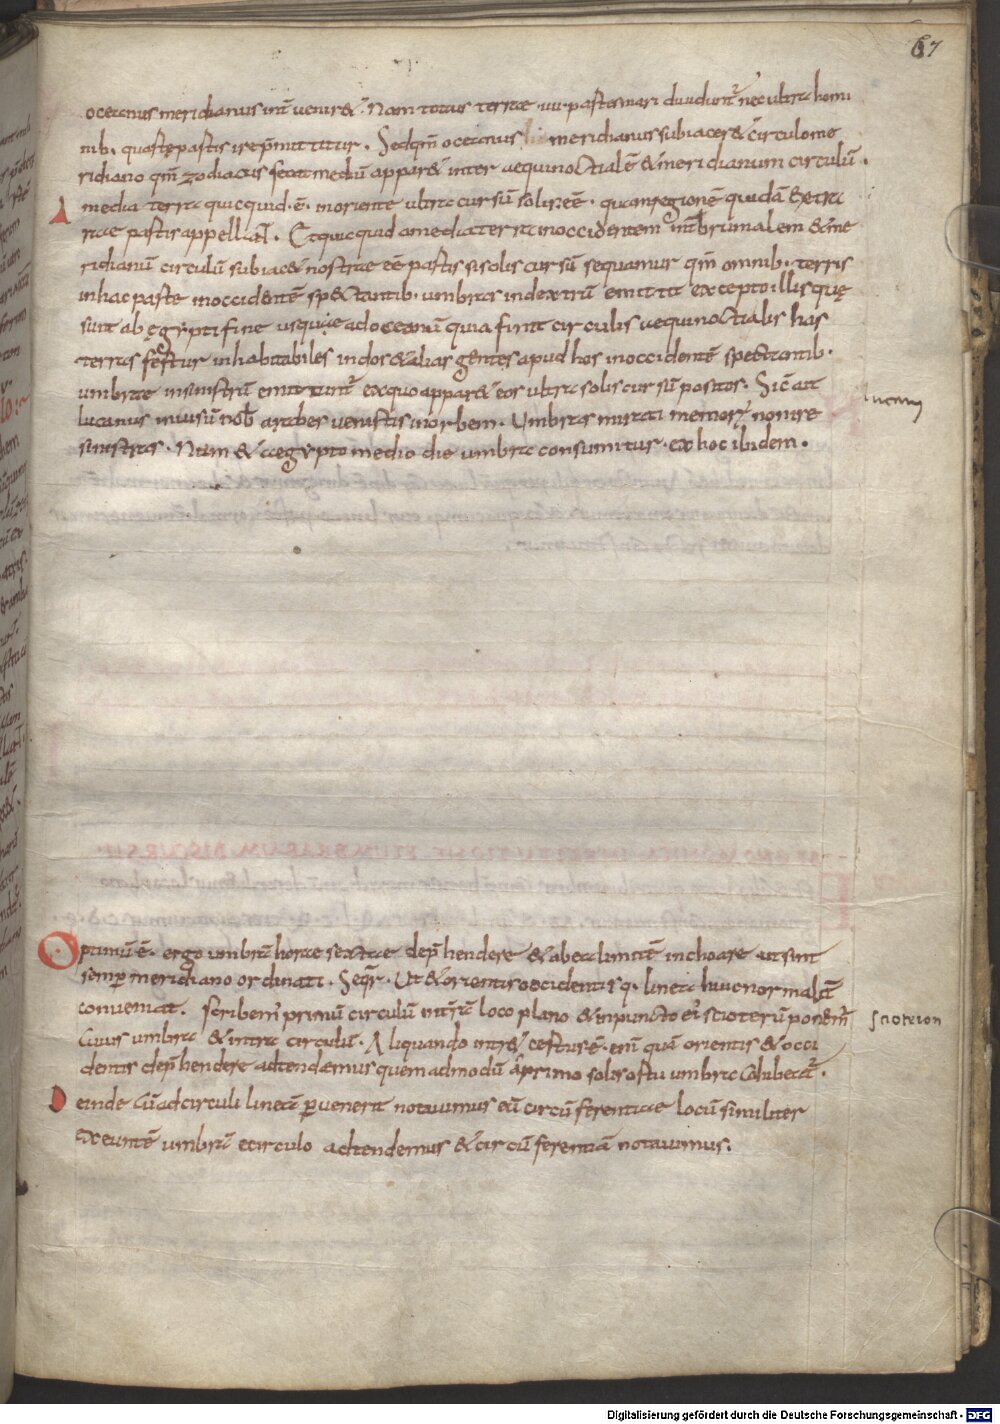 67
oceanus meridianus int̄ venire&. Nam totus terrae. uii. partes mari diuidunt̄ nec ultra homi
nib. quartę partis ire p̄mittitur. Sed qm̄ oceanus meridianus subiacere & circulo me
ridiano qm̄ zodiacus secat mediū appar& inter aequinoctialē & meridianum circulū.
A media terra quicquid. ē. in oriente ultra cursū solis eē. quam regionē quidā extra
rtae partis appellant̄. Et quicquid a media terra in occidentem int̄ brumalem & me
ridianū circulū subiac& nostrae eē partis si solis cursū sequamur qm̄ omnib. terris
in hac parte in occidentē spectantib. umbras in dextrū emittit excepto illis quę
sunt ab ęgypti fine usque ad oceanū quia finit circulis aequinoctialis has
terras fertur inhabitabiles indos & alias gentes apud hos in occidentē spectantib.
umbrae in sinistrū emittunt̄ ex quo appar& eos ultra solis cursū positos. Sic ait
lucanus in uisū uob̄ arabes uenistis in orbem. Umbras mirati nemorȩ non ire
sinistras. Nam & aegypto medio die umbra consumitur. ex hoc ibidem.
lucanus
Optimū ē. ergo umbrā horae sextae dep̄hendere & ab ea limitē inchoare ut sint
semp̄ meridiano ordinati. Seqr̄. Ut & orientis occidentisq. linea huic normalit̄
conueniat. scribem̄ primū circulū in t̄ra loco plano & in puncto ei' scioterū ponem̄
scioterion
Cuius umbra & intra circulū. Aliquando intr& certus ē. enī quā orientis & occi
dentis dep̄hendere adtendaemus quem admodū a primo solis ortu umbra cohibeat̄.
Deinde cū ad circuli lineā p̄uenerit notauimus eū circū ferentiae locū similiter
exeuntē umbrā e circulo adtendemus & circū ferentiā notauimus.
Digitalisierung gefördert durch die Deutsche Forschungsgemeinschaft - DFG